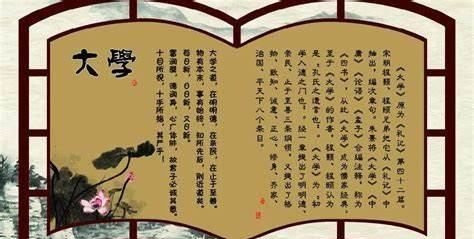 《大学》原为《礼记》第四十二篇。
宋朝程颢、程颐兄弟把它从《礼记》中
抽出，编次章句。朱熹将《大学》《中
庸》《论语》《孟子》合编注释，称为
《四书》，从此《大学》成为儒家经典。
至于《大学》的作者，程颢、程颐认为
是“孔氏之遗言也”。《大学》为“初
学入道之门也”。经一章提出了明明德、
亲民、止于至善三条纲领，又提出了格
物、致知、诚意、正心、修身、齐家、
治国、平天下八个条目。
大學
大学之道，在明明德，在亲民，在止于至善。
物有本末，事有终始，知所先后，则近道矣。
苟日新，日日新，又日新。
富润屋，德润身，心广体胖，故君子必诚其意。
十目所视，十手所指，其严乎！